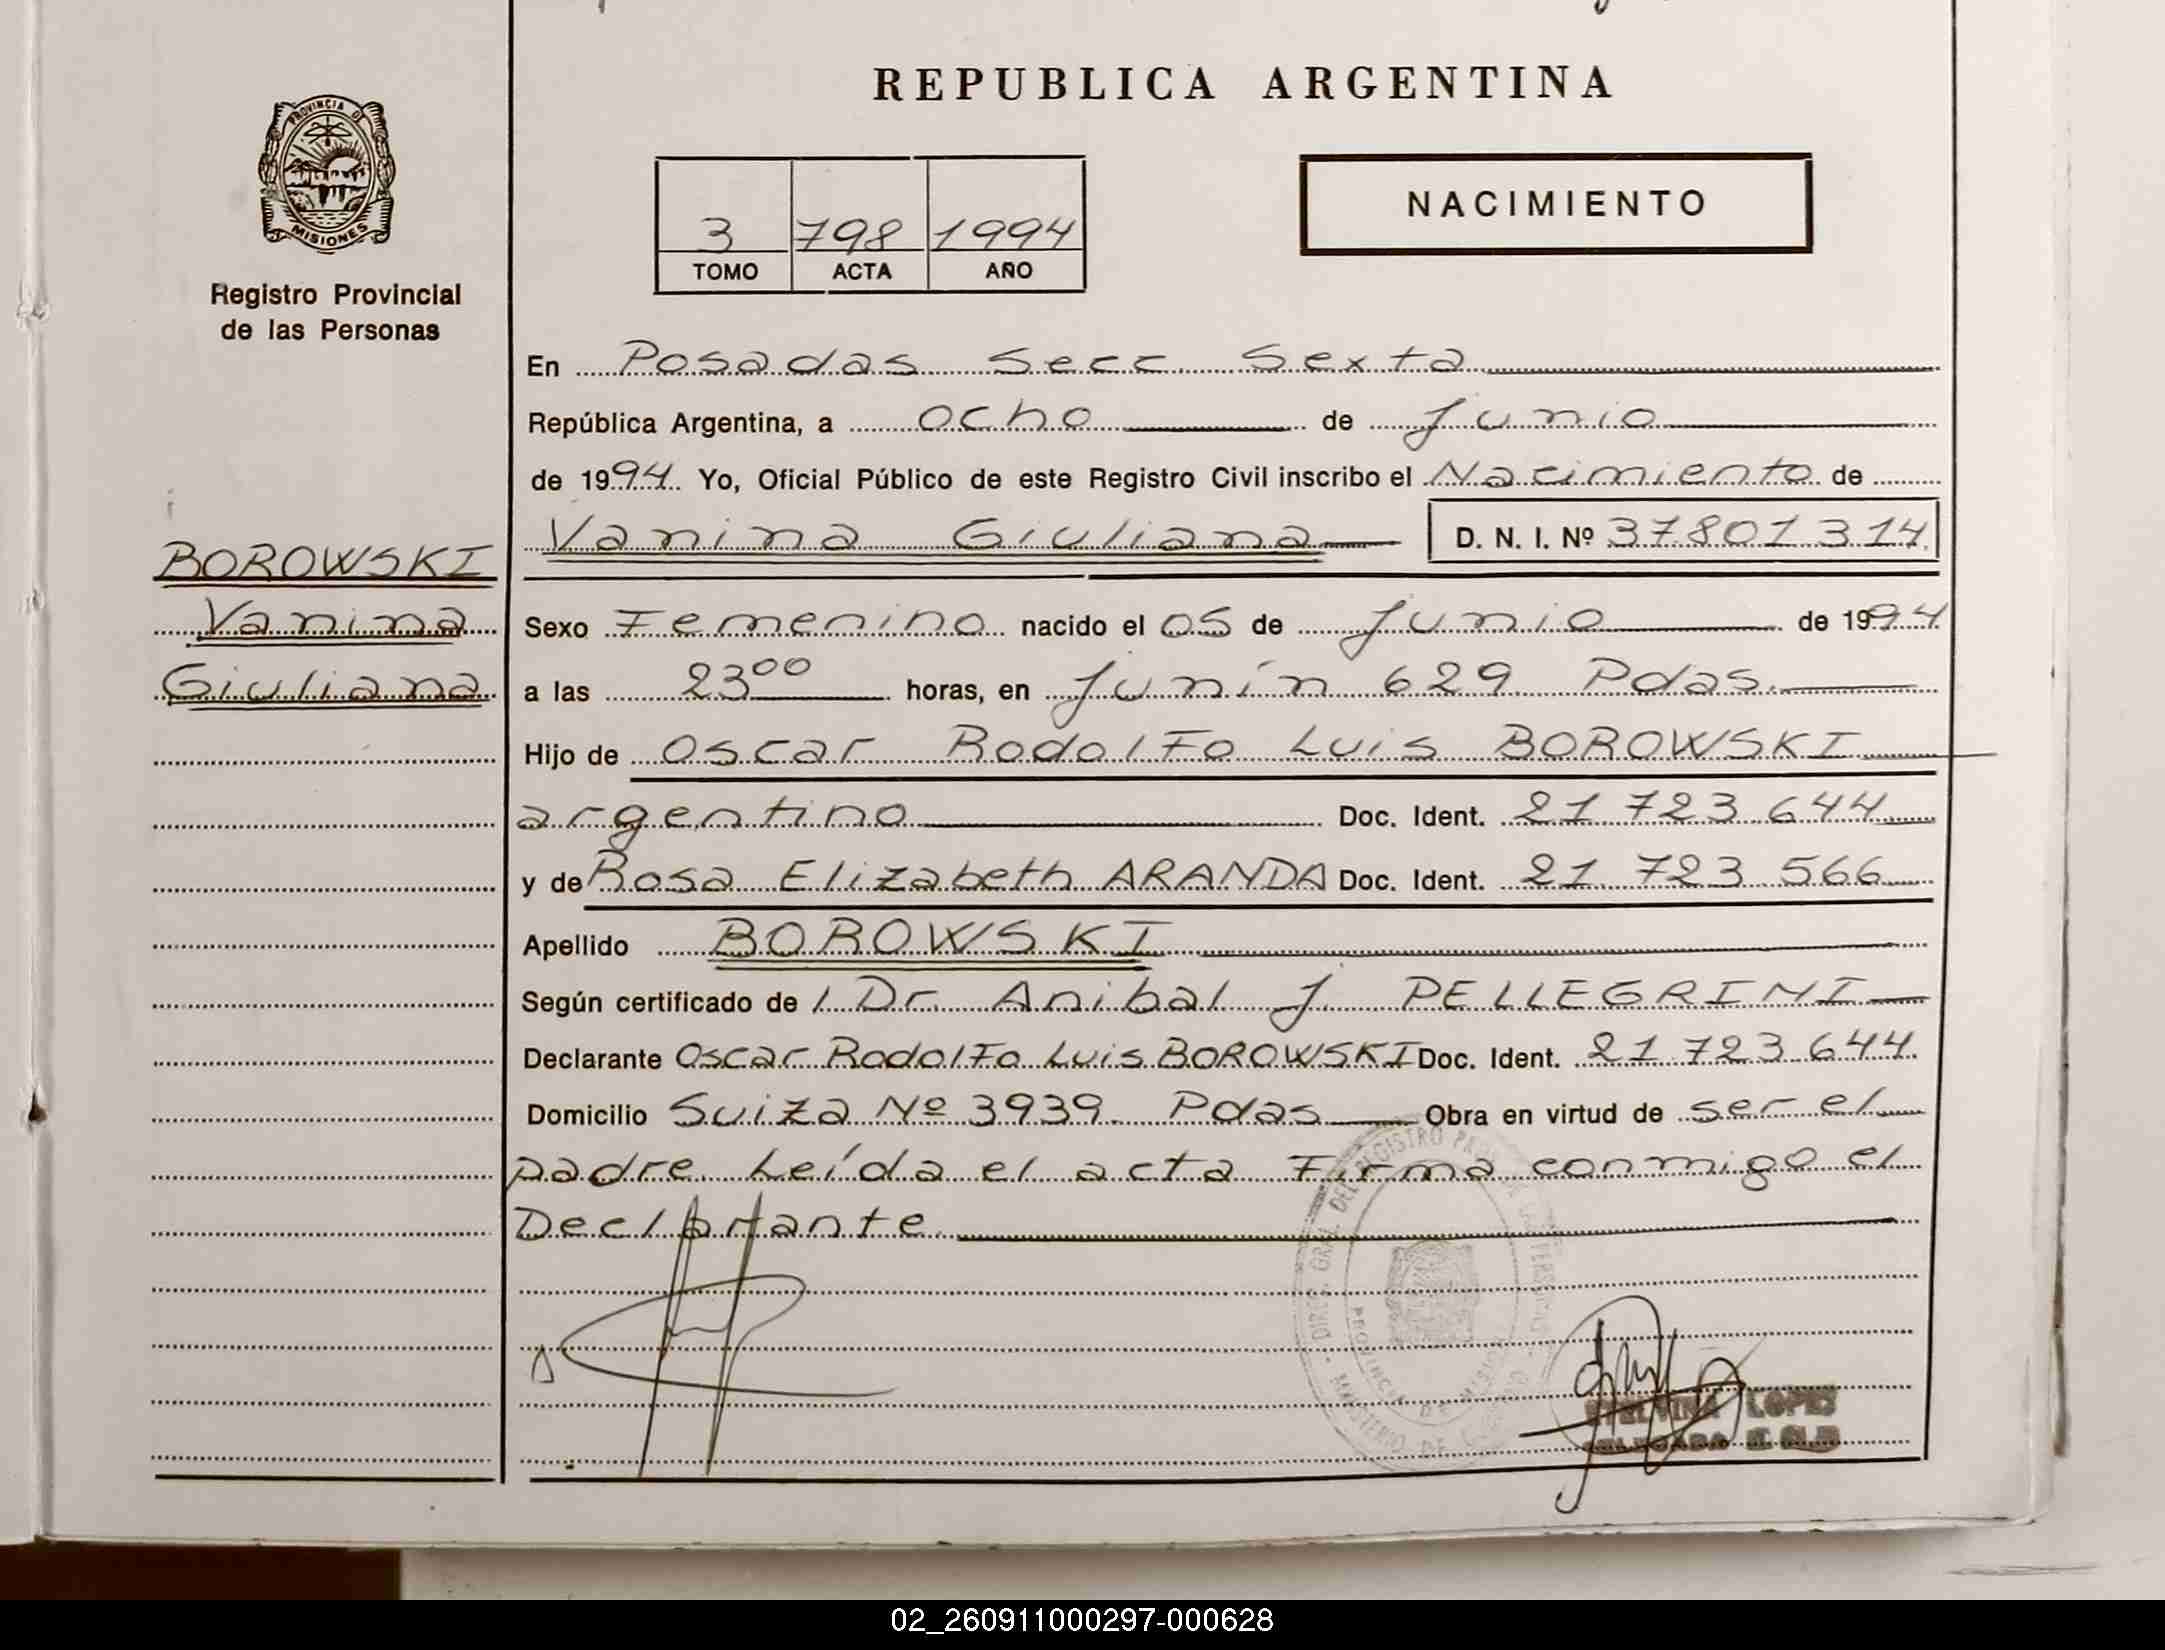 REPUBLICA ARGENTINA
PROVINCIA DE
MISIONES
Registro Provincial
de las Personas
3 798 1994
TOMO ACTA AÑO
NACIMIENTO
En Posadas Secc Sexta
República Argentina, a ocho de Junio
de 1994. Yo, Oficial Público de este Registro Civil inscribo el Nacimiento de
Vanina Giuliana D. N. I. Nº 37801314
BOROWSKI
Vanina
Giuliana
Sexo Femenino nacido el 05 de Junio de 1994
a las 23⁰⁰ horas, en Junín 629 Pdas.
Hijo de Oscar Rodolfo Luis BOROWSKI
argentino Doc. Ident. 21 723 644
y de Rosa Elizabeth ARANDA Doc. Ident. 21 723 566
Apellido BOROWSKI
Según certificado de l Dr. Anibal J. PELLEGRINI
Declarante Oscar Rodolfo Luis BOROWSKI Doc. Ident. 21 723 644
Domicilio Suiza Nº 3939 Pdas Obra en virtud de ser el
padre. Leída el acta Firma conmigo el
Declarante
LOPEZ
02_260911000297-000628